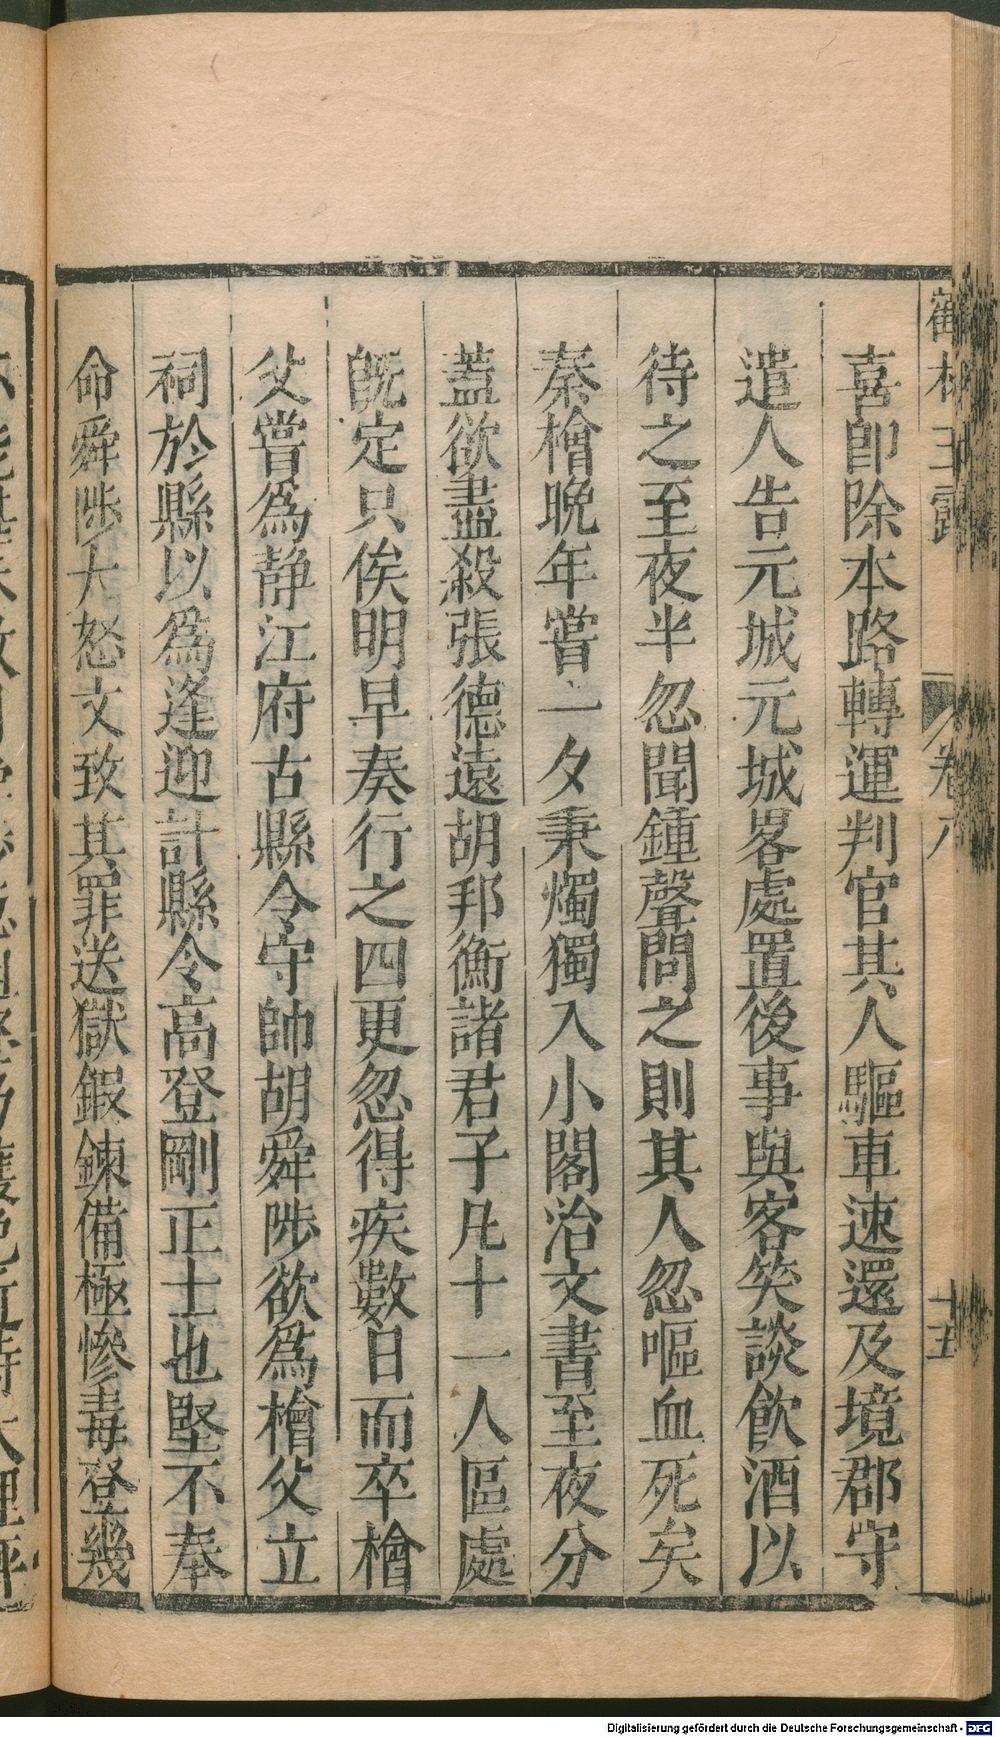 鶴林玉露
卷六
十五
喜卽除本路轉運判官其人驅車速還及境郡守
遣人告元城元城畧處置後事與客笑談飮酒以
待之至夜半忽聞鍾聲問之則其人忽嘔血死矣
秦檜晩年嘗一夕秉燭獨入小閣治文書至夜分
蓋欲盡殺張德遠胡邦衡諸君子凡十一人區處
旣定只俟明早奏行之四更忽得疾數日而卒檜
父嘗爲静江府古縣令守帥胡舜陟欲爲檜父立
祠於縣以爲逢迎計縣令高登剛正士也堅不奉
命舜陟大怒文致其罪送獄鍜鍊備極慘毒登幾
Digitalisierung gefördert durch die Deutsche Forschungsgemeinschaft - DFG